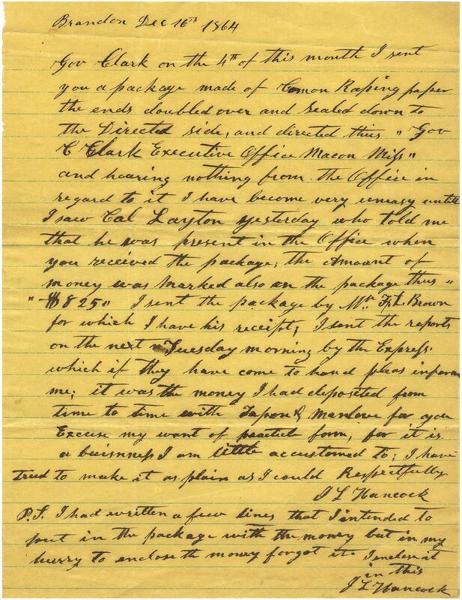 Brandon Dec 16th 1864
Gov Clark on the 4th of this month I sent
you a package made of Comon Raping paper
the ends doubled over and sealed down to
the Directed side, and directed thus "Gov
C Clark Executive Office Macon Miss"
and hearing nothing from the Office in
regard to it I have become very uneasy untill
I saw Cal Layton yesterday who told me
that he was present in the Office when
you received the package, the amount of
money was marked also on the package thus
"$8825" I sent the package by Mr Brown
for which I have his receipt, I sent the reports
on the next Tuesday morning by the Express.
which if they have come to hand pleas inform
me; it was the money I had deposited from
time to time with & Manlove for you
Excuse my want of form, for it is
a buisness I am little accustomed to, I have
tried to make it as plain as I could Respectfully
J L Hancock
P.S. I had written a few lines that I intended to
put in the package with the money but in my
hurry to enclose the money forgot it. I enclose it
in this
J L Hancock